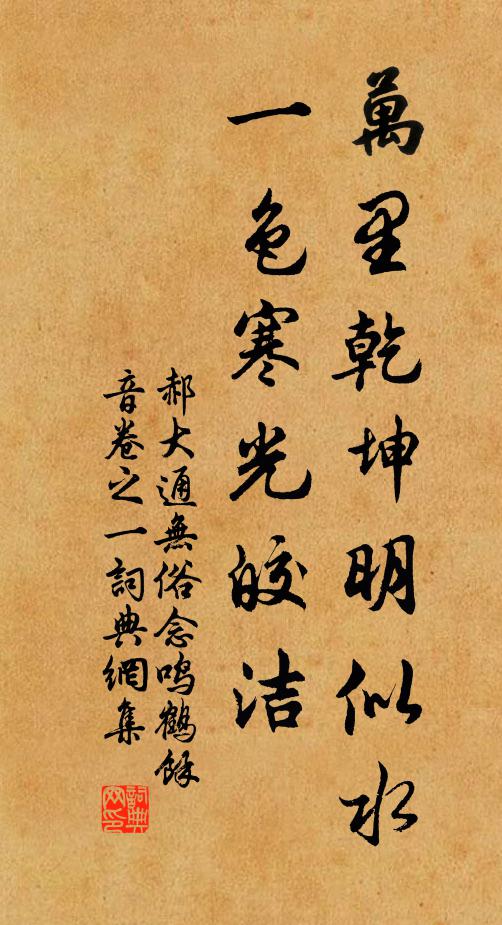 萬里乾坤明似水
一色寒光皎洁
郝大通無俗念鳴鶴餘
音卷之一詞典網集
詞典
网印